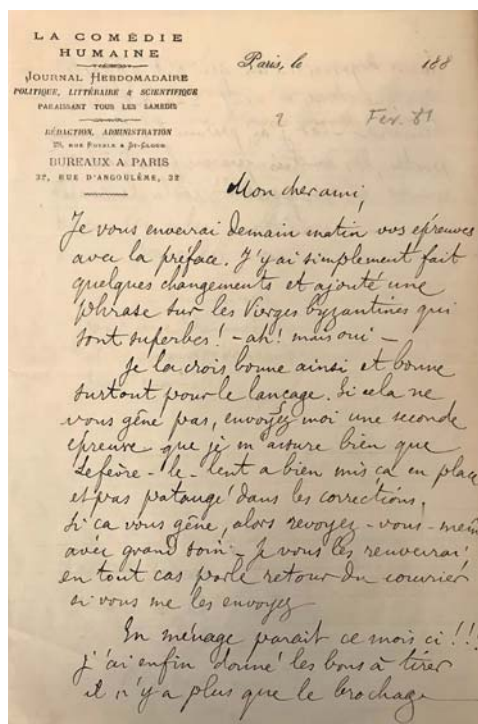 LA COMÉDIE
HUMAINE
JOURNAL HEBDOMADAIRE
POLITIQUE, LITTÉRAIRE & SCIENTIFIQUE
PARAISSANT TOUS LES SAMEDIS
RÉDACTION, ADMINISTRATION
RUE ROYALE A ST-CLOUD
BUREAUX A PARIS
32, RUE D'ANGOULÊME, 32
Paris, le 188
2 Fév. 81
Mon cher ami,
Je vous enverrai demain matin vos épreuves
avec la préface. J'y ai simplement fait
quelques changements et ajouté une
phrase sur les Vierges byzantines qui
sont superbes! - ah! mais oui -
Je la crois bonne ainsi et bonne
surtout pour le lançage. Si cela ne
vous gêne pas, envoyez moi une seconde
épreuve que je m'assure bien que
Lefèvre-le-lent a bien mis ça en place
et pas pataugé dans les corrections.
Si ça vous gêne, alors revoyez-vous-même
avec grand soin - Je vous les renverrai
en tout cas par le retour du courrier
si vous me les envoyez
En ménage parait ce mois ci!!!
j'ai enfin donné les bons à tirer
il n'y a plus que le brochage